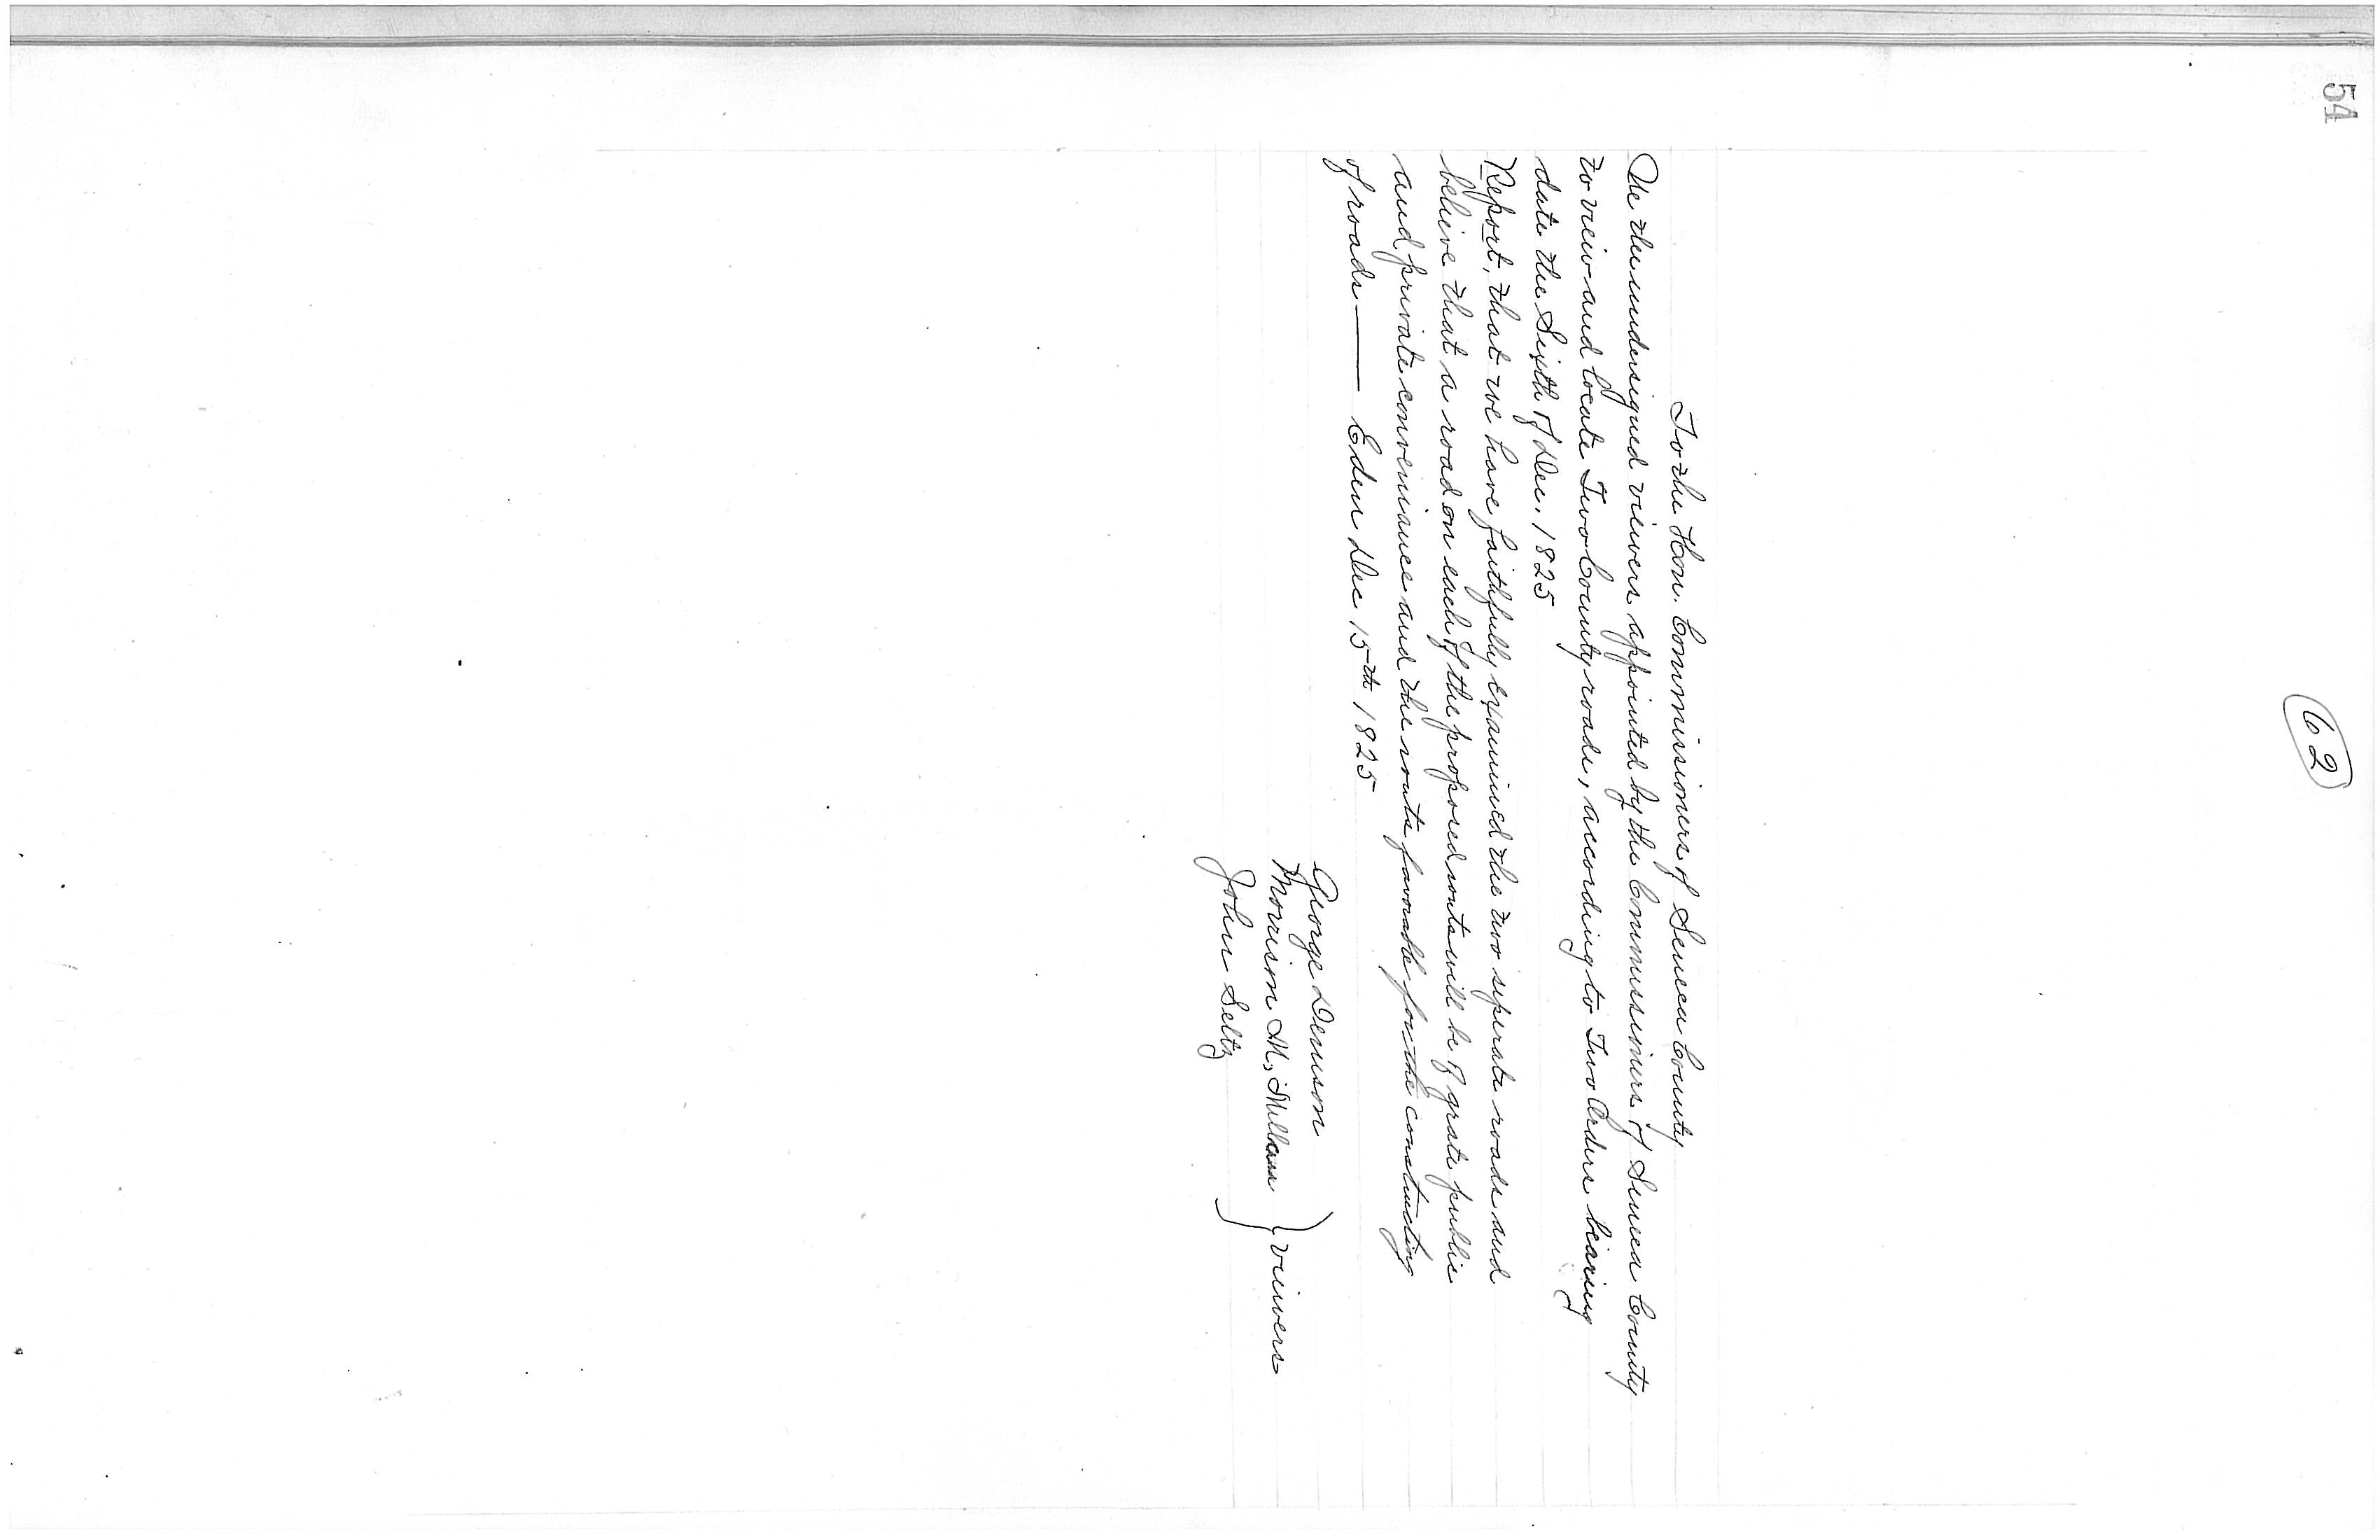 54
62
To the Hon. Commissioners of Seneca County
We the undersigned viewers appointed by the Commissioners of Seneca County
to view and locate Two County roads, according to Two Orders bearing
date the Sixth of Dec. 1825
Report, that we have faithfully examined the two seperate roads and
believe that a road on each of the proposed routs will be of grate public
and private convenience and the routs favorable for the constructing
of roads — Eden Dec 15th 1825
George Denison
Morrison M, Millan } viewers
John Seltz